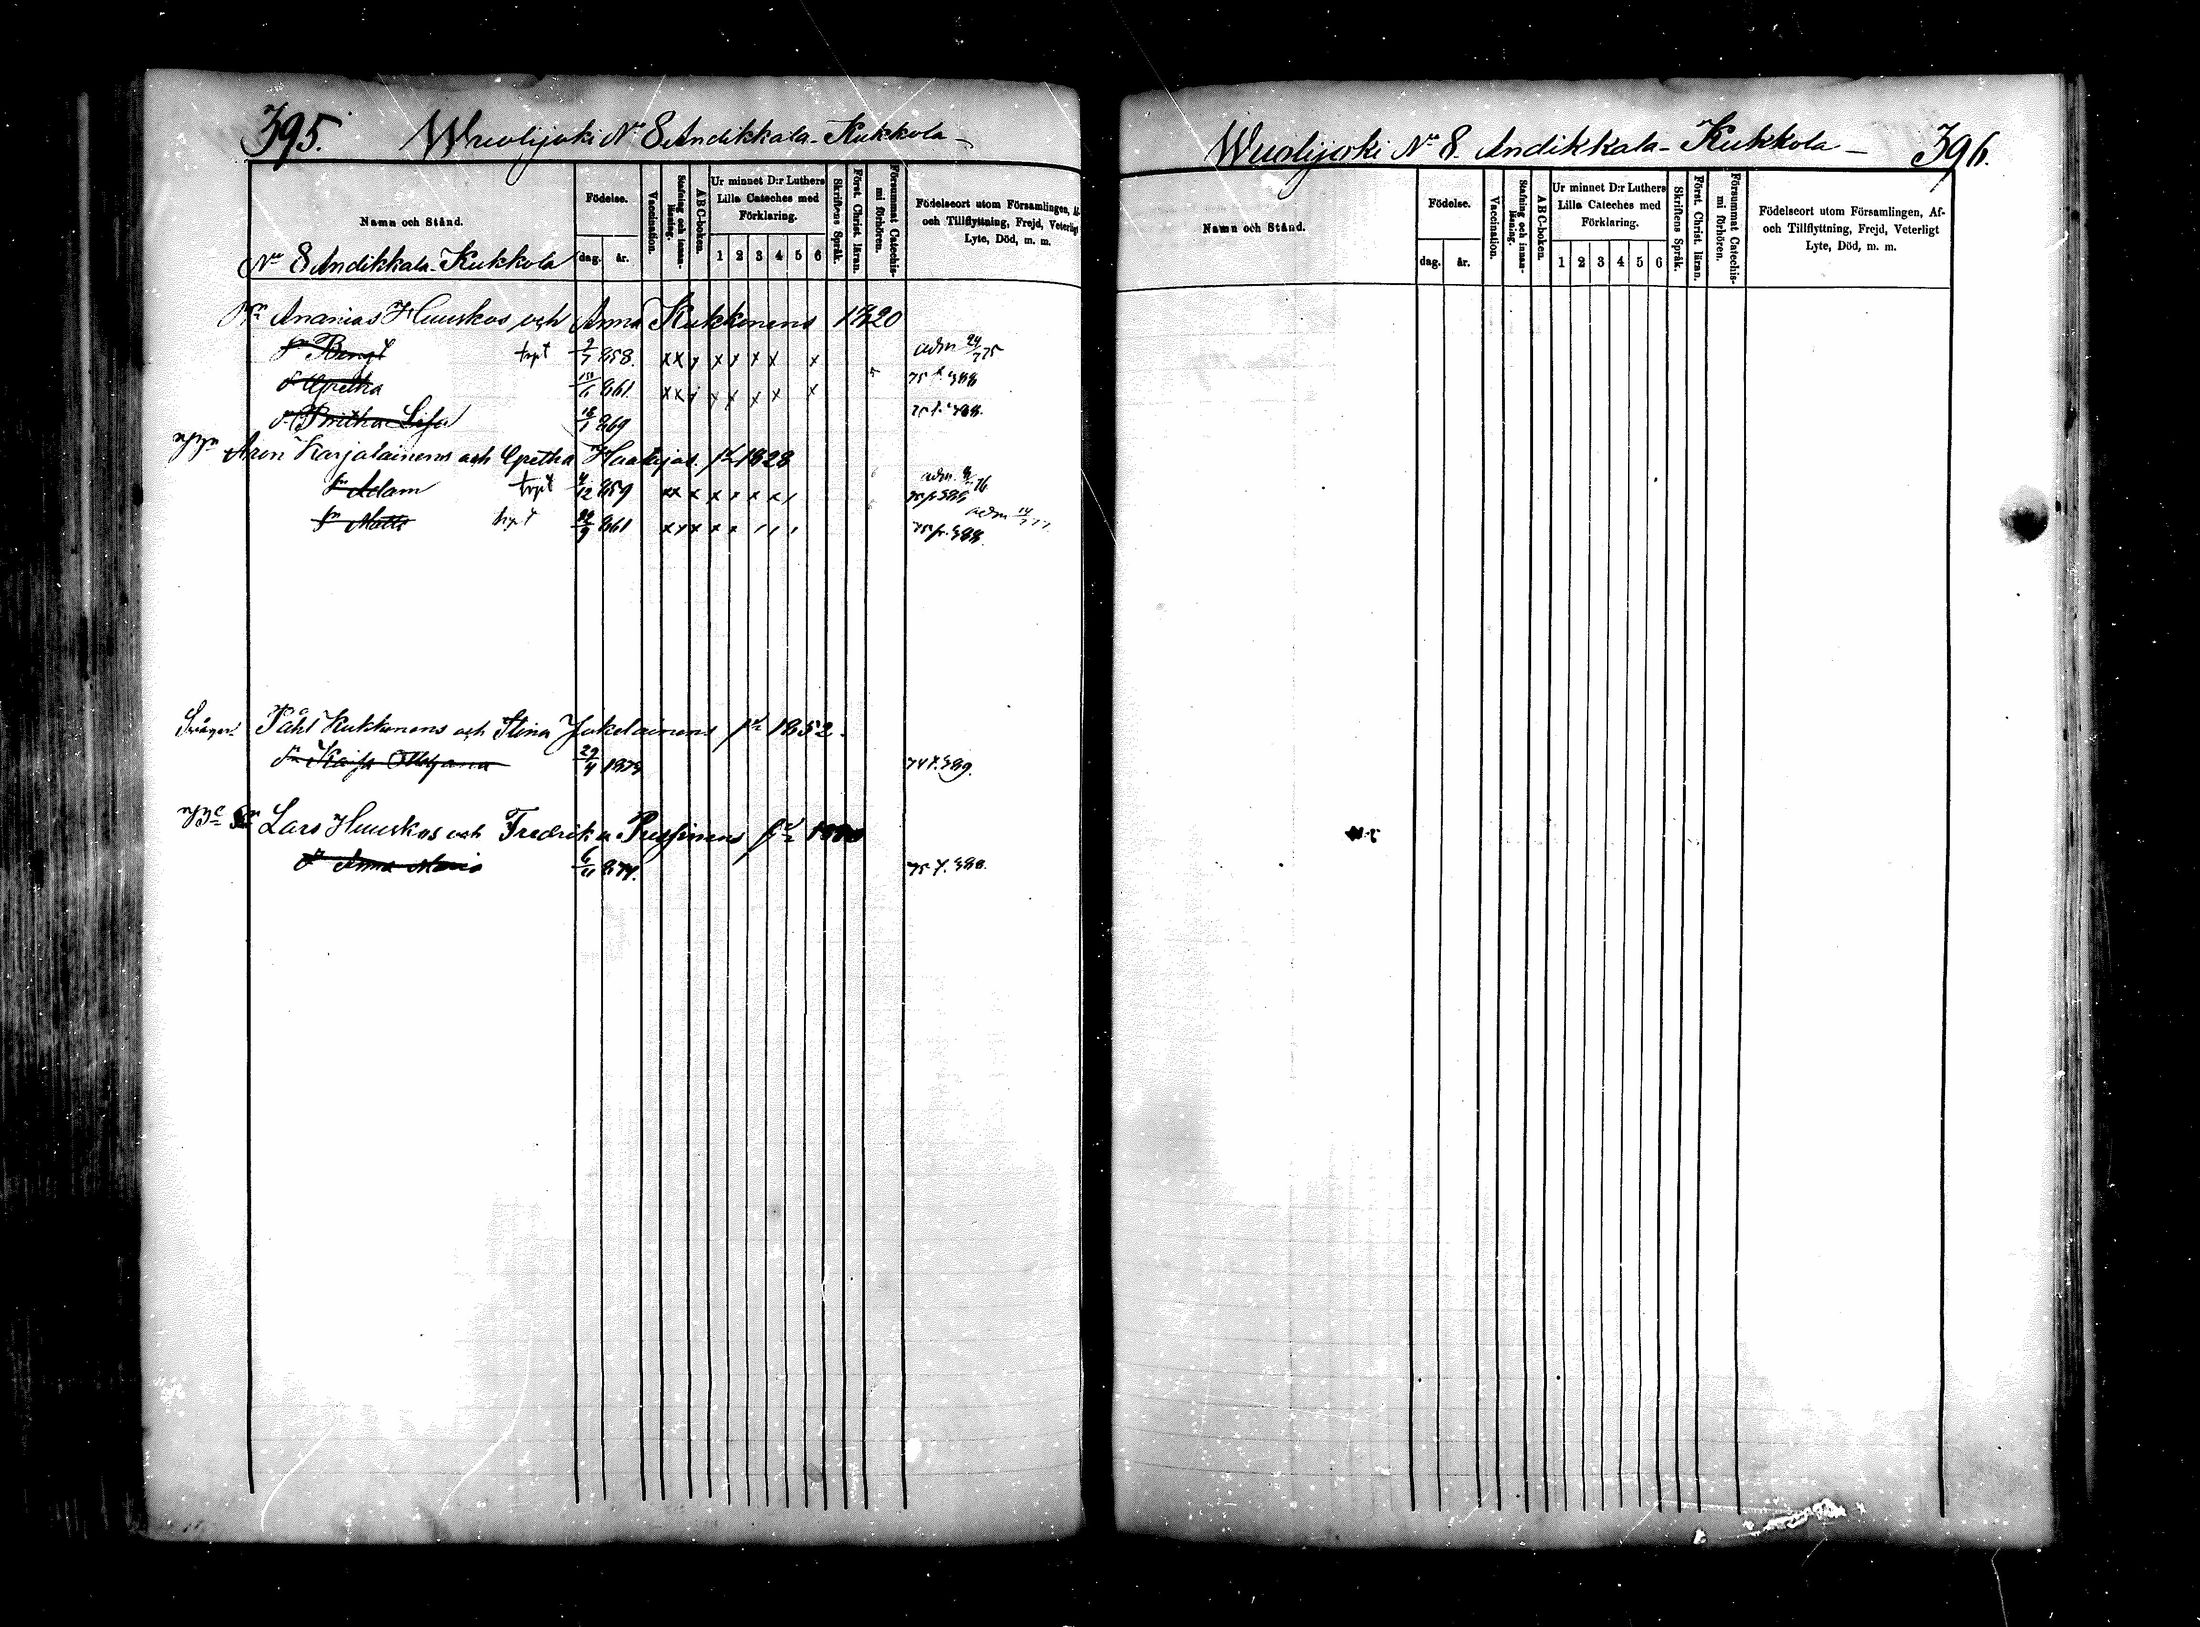 395. Wuolijoki No 8 Andikkala-Kukkola
Namn och Stånd.
Födelse.
dag. år.
Vaccination.
Stafning och innan-läsning.
ABC-boken.
Ur minnet D:r Luthers
Lilla Cateches med
Förklaring.
1 2 3 4 5 6
Skriftens Språk.
Först. Christ. läran.
Försummat Catechis-
mi förhören.
Födelseort utom Församlingen, Af-
och Tillflyttning, Frejd, Veterligt
Lyte, Död, m. m.
No 8 Andikkala-Kukkola
Ananias Huuskos och Anna Kukkonens 1820
Sn Bengt 858. x x x x x x x x adm 24/7 75
dr Gretha 861 x x x x x x x x 75 f. 388
dr Britha Lisa 18/1 869
Aron Karjalainens och Gretha Haatajas 1828
Sn Adam 4/12 859 x x x x x x x
Sn Matts 861 x x x x x 75 p. 388
Påhl Kukkonens och Stina Jokelainens 1852
Kaisa 29/4 1873 389.
Lars Huuskos och Fredrika
dr Anna Maria 6/11 874.
Wuolijoki No 8. Andikkala-Kukkola 396.
Namn och Stånd.
Födelse.
dag. år.
Vaccination.
Stafning och innan-läsning.
ABC-boken.
Ur minnet D:r Luthers
Lilla Cateches med
Förklaring.
1 2 3 4 5 6
Skriftens Språk.
Först. Christ. läran.
Försummat Catechis-
mi förhören.
Födelseort utom Församlingen, Af-
och Tillflyttning, Frejd, Veterligt
Lyte, Död, m. m.